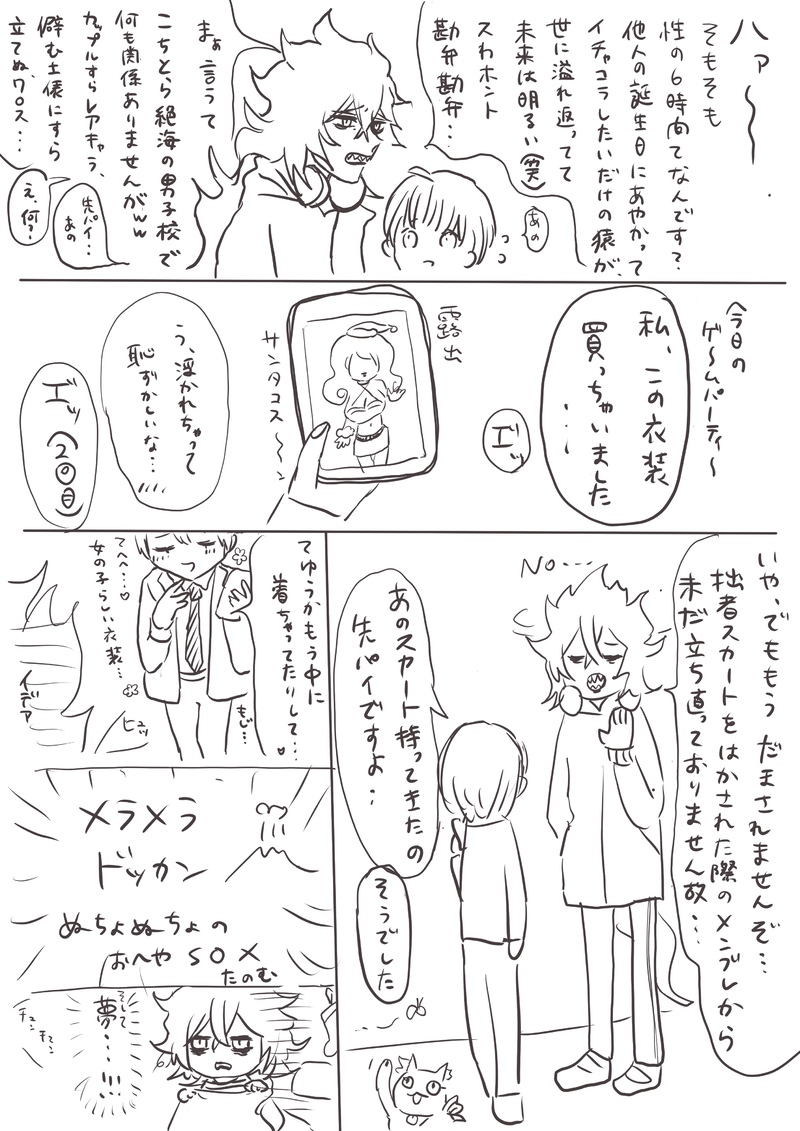 ハァ〜
そもそも
性の6時間てなんです?
他人の誕生日にあやかって
イチャコラしたいだけの猿が、
世に溢れ返ってて
未来は明るい(笑)
スわホント
勘弁勘弁…
あの
まぁ言うて
こちとら絶海の男子校で
何も関係ありませんがww
カップルすらレアキャラ、
僻む土俵にすら
立てぬ、ワロス…
先パイ…
あの
え、何?
今日の
ゲ〜ムパーティ〜
私、この衣装
買っちゃいました
…
エッ
露出
サンタコス〜ン
う、浮かれちゃって
恥ずかしいな…
エッ(2回目)
いや、でももうだまされませんぞ…
拙者スカートをはかされた際のメンブレから
未だ立ち直っておりません故…
NO…
あのスカート持ってきたの
先パイですよ…
そうでした
てゆうかもう中に
着ちゃってたりして…♡
もじ…
てへへ…♡
女の子らしい衣装…
ヒュッ
イデア
メラメラ
ドッカン
ぬちょぬちょの
おへやSOX
たのむ
そして
夢…!!!
チュン
チュン